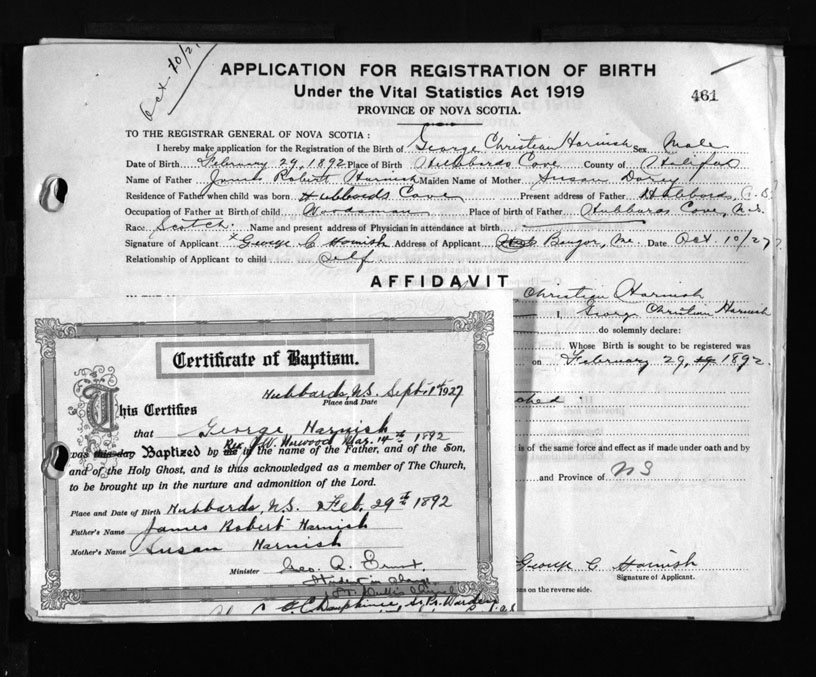 Oct. 10/27
APPLICATION FOR REGISTRATION OF BIRTH
Under the Vital Statistics Act 1919
461
PROVINCE OF NOVA SCOTIA.
TO THE REGISTRAR GENERAL OF NOVA SCOTIA :
I hereby make application for the Registration of the Birth of George Christian Harnish Sex Male
Date of Birth February 29, 1892 Place of Birth Hubbards Cove County of Halifax
Name of Father James Robert Harnish Maiden Name of Mother Susan Dorey
Residence of Father when child was born Hubbards Cove Present address of Father Hubbards,
Occupation of Father at Birth of child Woodsman Place of birth of Father Hubbards Cove, N.S.
Race Scotch Name and present address of Physician in attendance at birth
Signature of Applicant x George C Harnish Address of Applicant Bangor, Me. Date Oct. 10/27
Relationship of Applicant to child Self
AFFIDAVIT
Christian Harnish
I, George Christian Harnish
do solemnly declare:
Whose Birth is sought to be registered was
on February 29, 1892.
is of the same force and effect as if made under oath and by
and Province of NS
George C Harnish
Signature of Applicant.
on the reverse side.
Certificate of Baptism.
Hubbards, N.S. Sept. 1st 1927
Place and Date
This Certifies
that George Harnish
Rev. Norwood Mar. 14th 1892
was this day Baptized by me in the name of the Father, and of the Son,
and of the Holy Ghost, and is thus acknowledged as a member of The Church,
to be brought up in the nurture and admonition of the Lord.
Place and Date of Birth Hubbards, N.S. Feb. 29th 1892
Father's Name James Robert Harnish
Mother's Name Susan Harnish
Minister Geo. A. Ernst,
Student in Charge